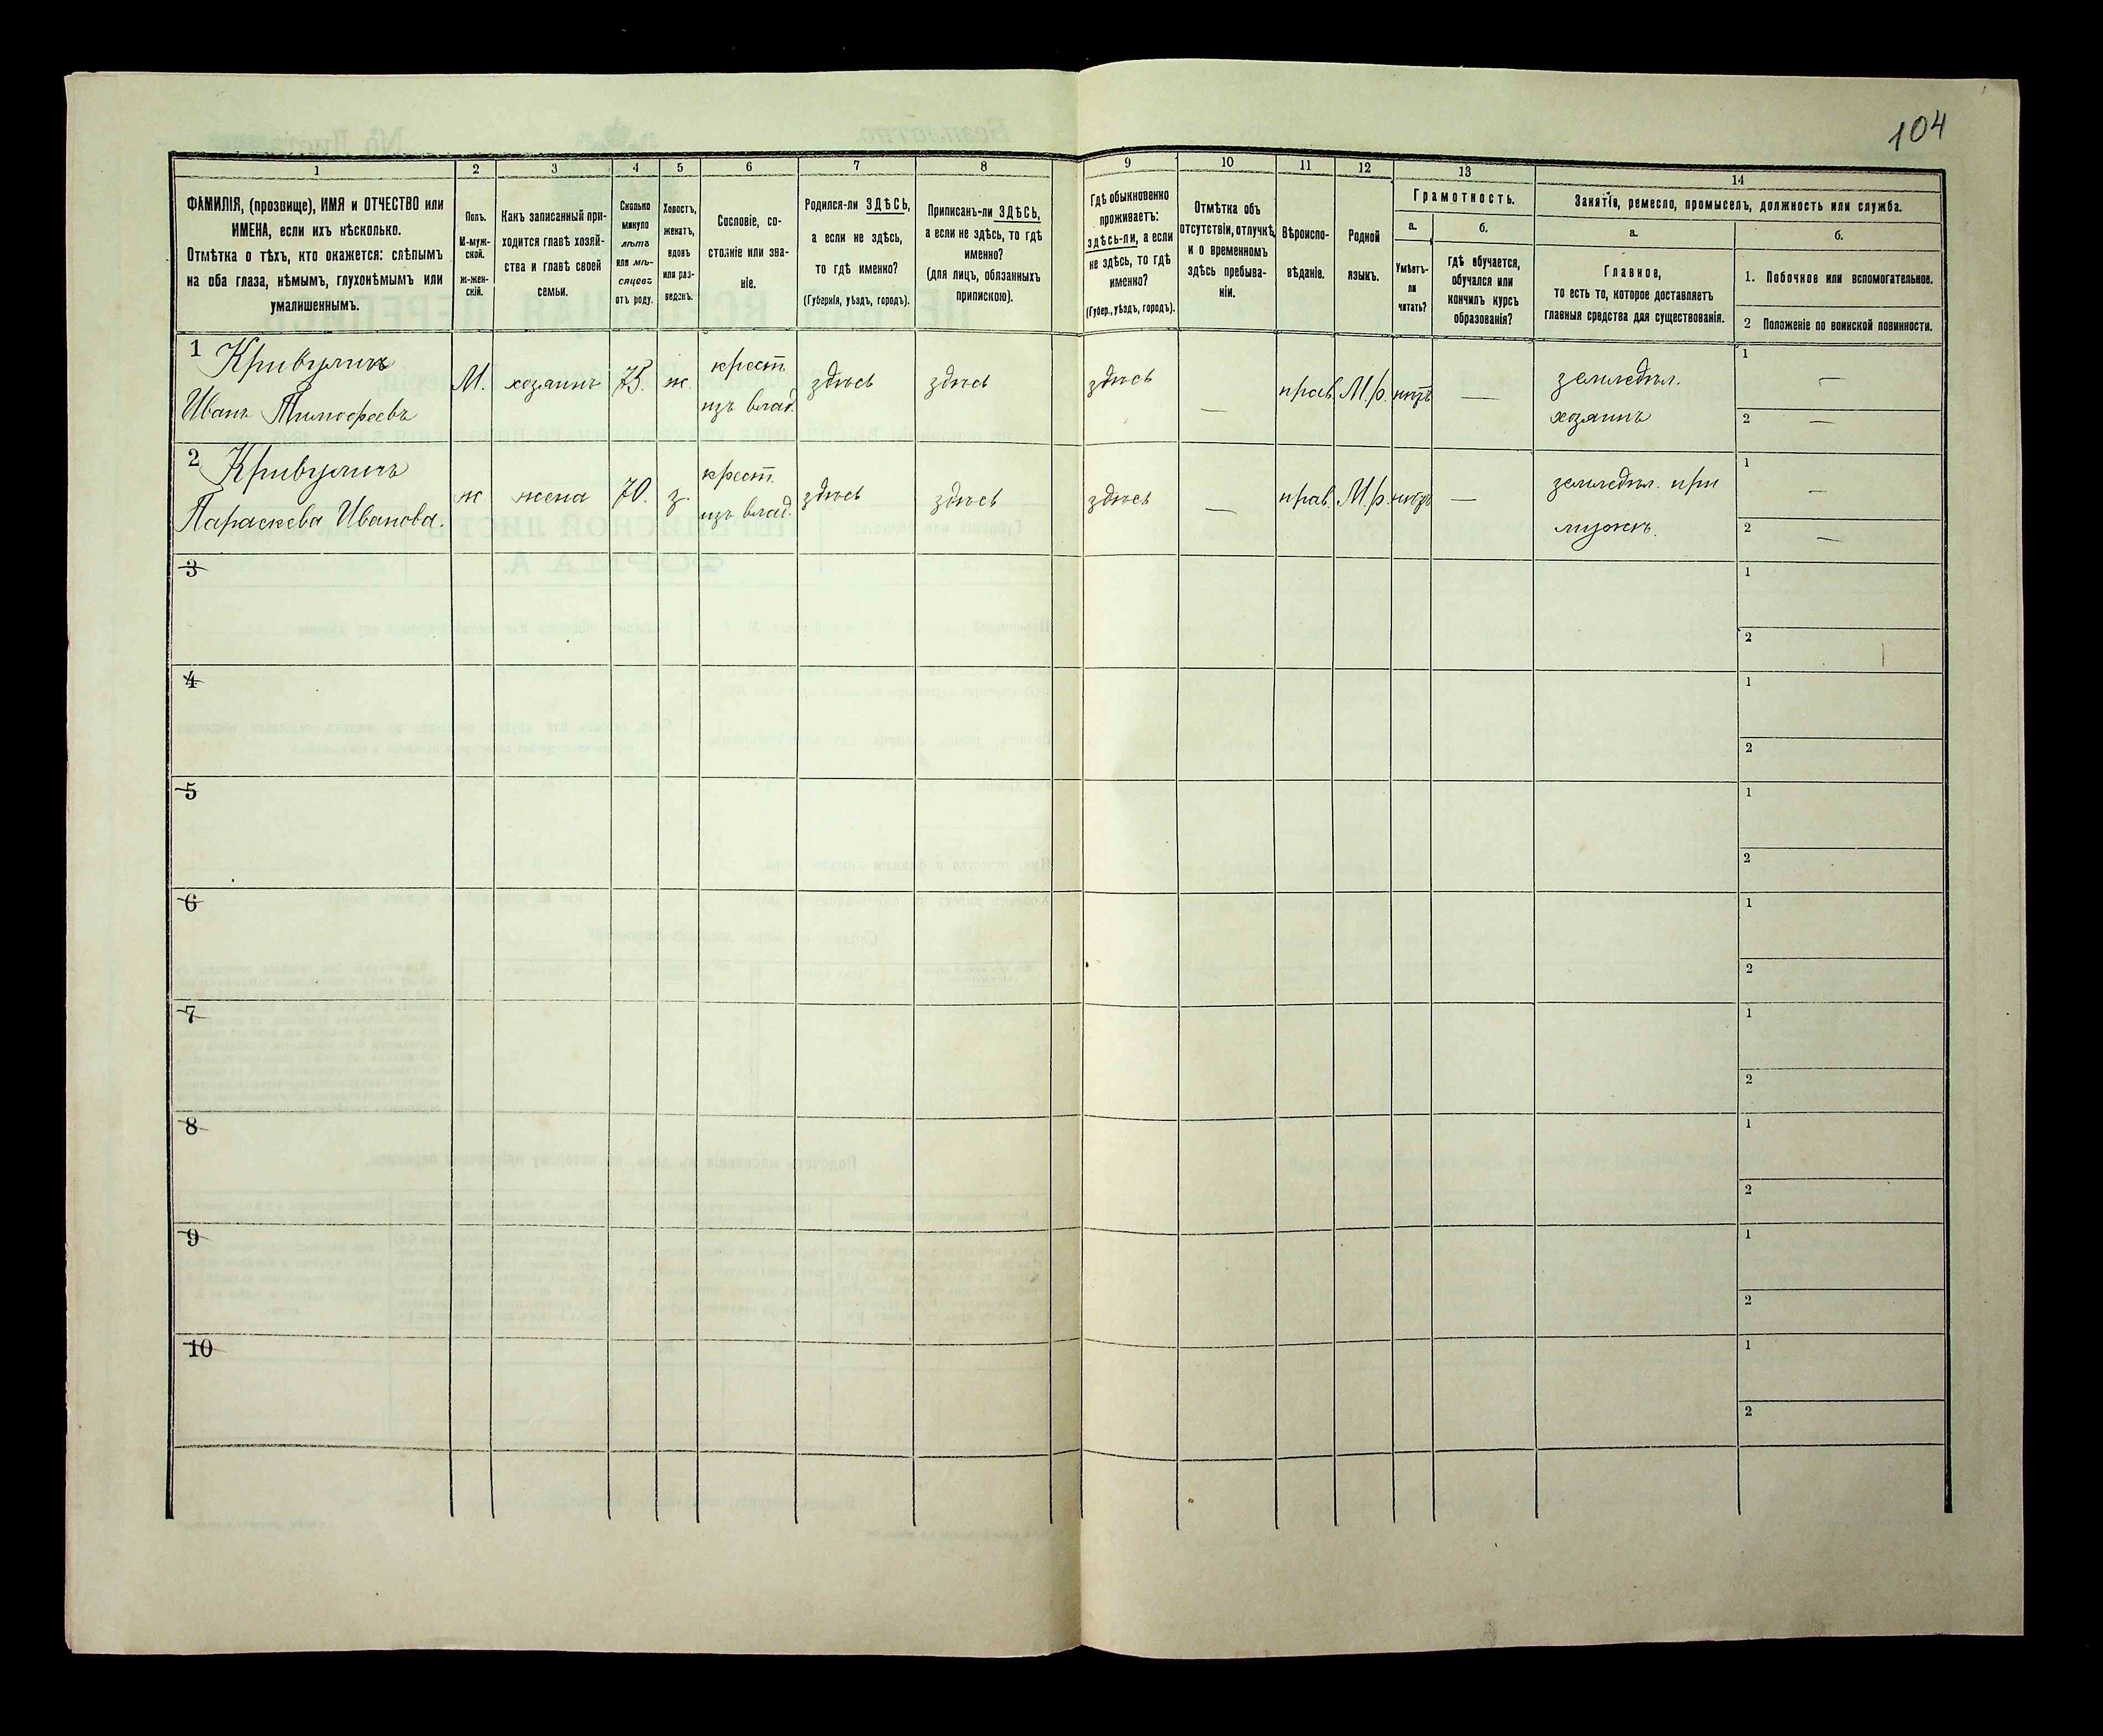 104
1
2
3
4
5
6
7
8
9
10
11
12
13
14
ФАМИЛІЯ, (прозвище), ИМЯ и ОТЧЕСТВО или
ИМЕНА, если ихъ нѣсколько.
Отмѣтка о тѣхъ, кто окажется: слѣпымъ
на оба глаза, нѣмымъ, глухонѣмымъ или
умалишеннымъ.
Полъ.
М-муж-
ской.
ж-жен-
скій.
Какъ записанный при-
ходится главѣ хозяй-
ства и главѣ своей
семьи.
Сколько
минуло
лѣтъ
или мѣ-
сяцевъ
отъ роду.
Холостъ,
женатъ,
вдовъ
или раз-
веденъ.
Сословіе, со-
стояніе или зва-
ніе.
Родился-ли ЗДѢСЬ,
а если не здѣсь,
то гдѣ именно?
(Губернія, уѣздъ, городъ).
Приписанъ-ли ЗДѢСЬ,
а если не здѣсь, то гдѣ
именно?
(для лицъ, обязанныхъ
припискою).
Гдѣ обыкновенно
проживаетъ:
здѣсь-ли, а если
не здѣсь, то гдѣ
именно?
(Губер., уѣздъ, городъ).
Отмѣтка объ
отсутствіи, отлучкѣ
и о временномъ
здѣсь пребыва-
ніи.
Вѣроиспо-
вѣданіе.
Родной
языкъ.
Грамотность.
а.
Умѣетъ-
ли
читать?
б.
гдѣ обучается,
обучался или
кончилъ курсъ
образованія?
Занятія, ремесло, промыселъ, должность или служба.
а.
Главное,
то есть то, которое доставляетъ
главныя средства для существованія.
б.
1. Побочное или вспомогательное.
2 Положеніе по воинской повинности.
1 Кривуличъ
Иванъ Тимофеевъ
М.
хозяинъ
75.
ж.
крест.
изъ влад.
здѣсь
здѣсь
здѣсь
—
прав.
М.р.
нѣтъ
—
земледѣл.
хозяинъ
1 —
2 —
2 Кривуличъ
Параскева Иванова.
ж
жена
70.
з.
крест.
изъ влад.
здѣсь
здѣсь
здѣсь
—
прав.
М.р.
нѣтъ
—
земледѣл. при
мужѣ.
1 —
2 —
3
1
2
4
1
2
5
1
2
6
1
2
7
1
2
8
1
2
9
1
2
10
1
2